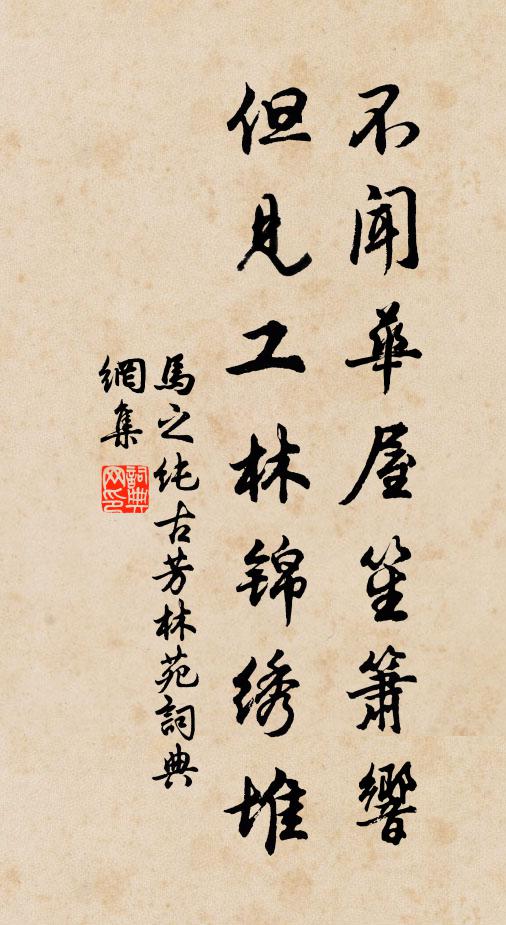 不闻華屋笙簫響
但見工林锦绣堆
馬之纯古芳林苑詞典
網集
詞典
网印